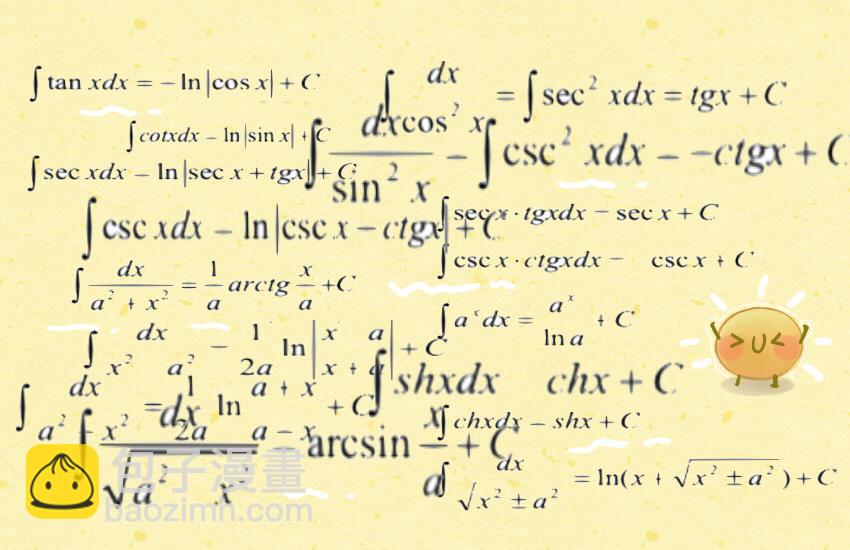 ∫ tan xdx = − ln|cos x| + C
∫ cotxdx − ln|sin x| + C
∫ sec xdx − ln|sec x + tgx| + C
∫ csc xdx − ln|csc x − ctgx| + C
∫ dx / (a² + x²) = 1/a arctg x/a + C
∫ dx / (x² a²) − 1/2a ln|x a / x + a| + C
∫ dx / (a² x²) = 1/2a ln (a + x)/(a − x) + C
∫ dx / √(a² x²) arcsin x/a + C
∫ dx / cos² x = ∫ sec² xdx = tgx + C
∫ dx / sin² x − ∫ csc² xdx − −ctgx + C
∫ sec x · tgxdx − sec x + C
∫ csc x · ctgxdx − csc x + C
∫ aˣdx = aˣ / ln a + C
∫ shxdx chx + C
∫ chxdx − shx + C
∫ dx / √(x² ± a²) = ln(x + √(x² ± a²)) + C
包子漫畫
baozimh.com